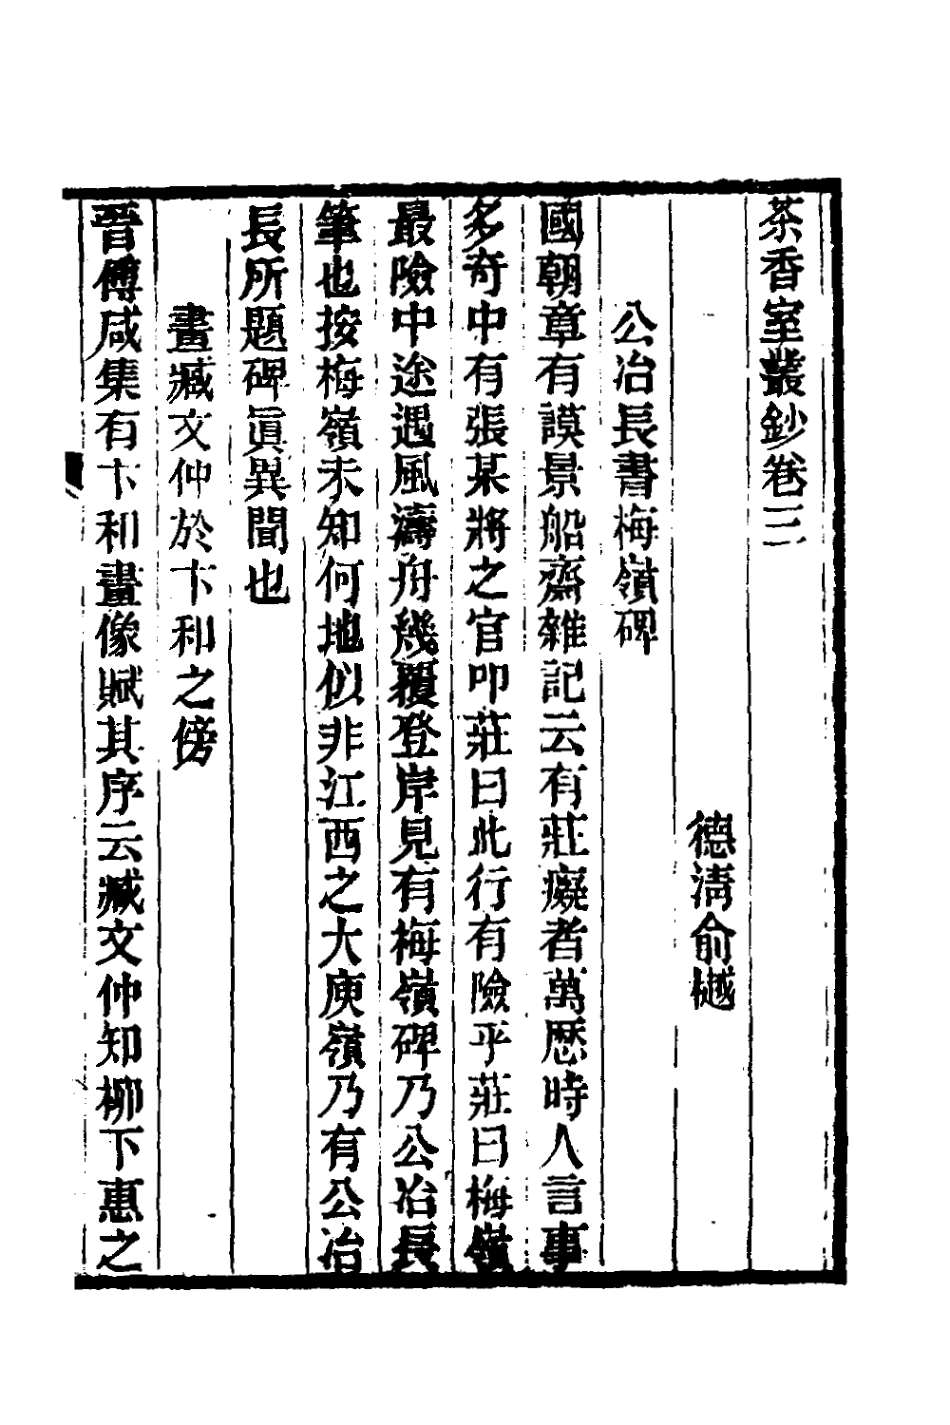 茶香室叢鈔卷三
德淸俞樾
公冶長書梅嶺碑
國朝章有謨景船齋雜記云有莊癡者萬厯時人言事
多奇中有張某將之官叩莊曰此行有險乎莊曰梅嶺
最險中途遇風濤舟幾覆登岸見有梅嶺碑乃公冶長
筆也按梅嶺未知何地似非江西之大庾嶺乃有公冶
長所題碑眞異聞也
畫臧文仲於卞和之傍
晉傅咸集有卞和畫像賦其序云臧文仲知柳下惠之